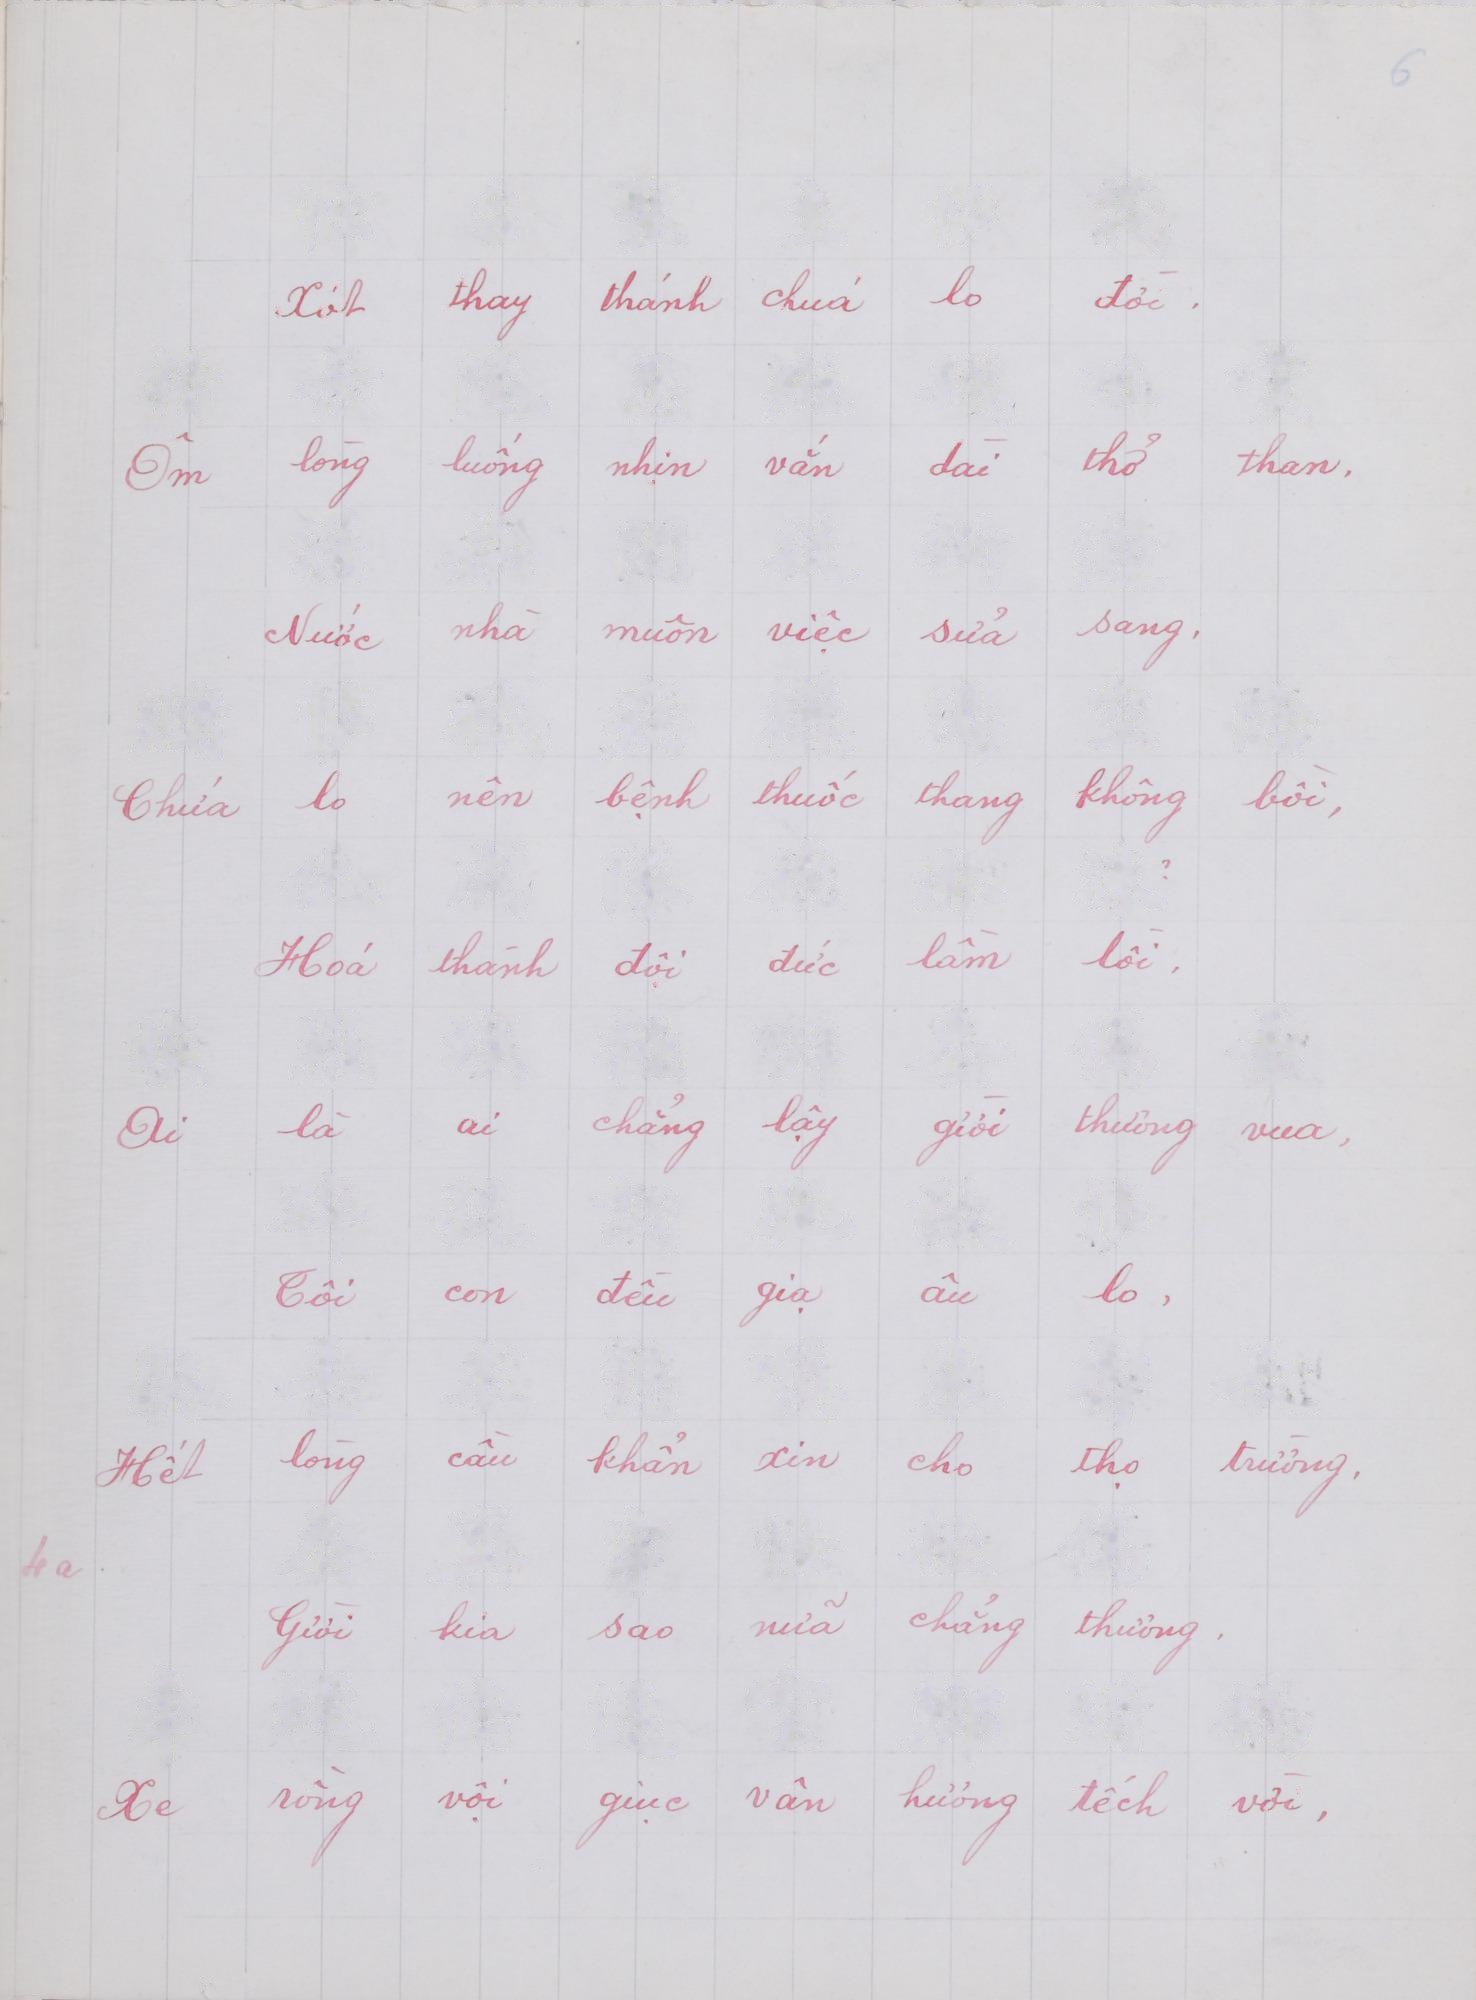 6
Xót thay thánh chuá lo đời.
Ôm lòng luống nhịn vắn dài thở than.
Nước nhà muôn việc sửa sang.
Chứa lo nên bệnh thuốc thang không bồi,
?
Hoá thành đội đức lầm lồi.
Ai là ai chẳng lậy giời thương vua,
Tôi con đều giạ âu lo,
Hết lòng cầu khẩn xin cho thọ trường.
4a
Giời kia sao nữa chẳng thương.
Xe rồng vội giục vân hương tếch vời,